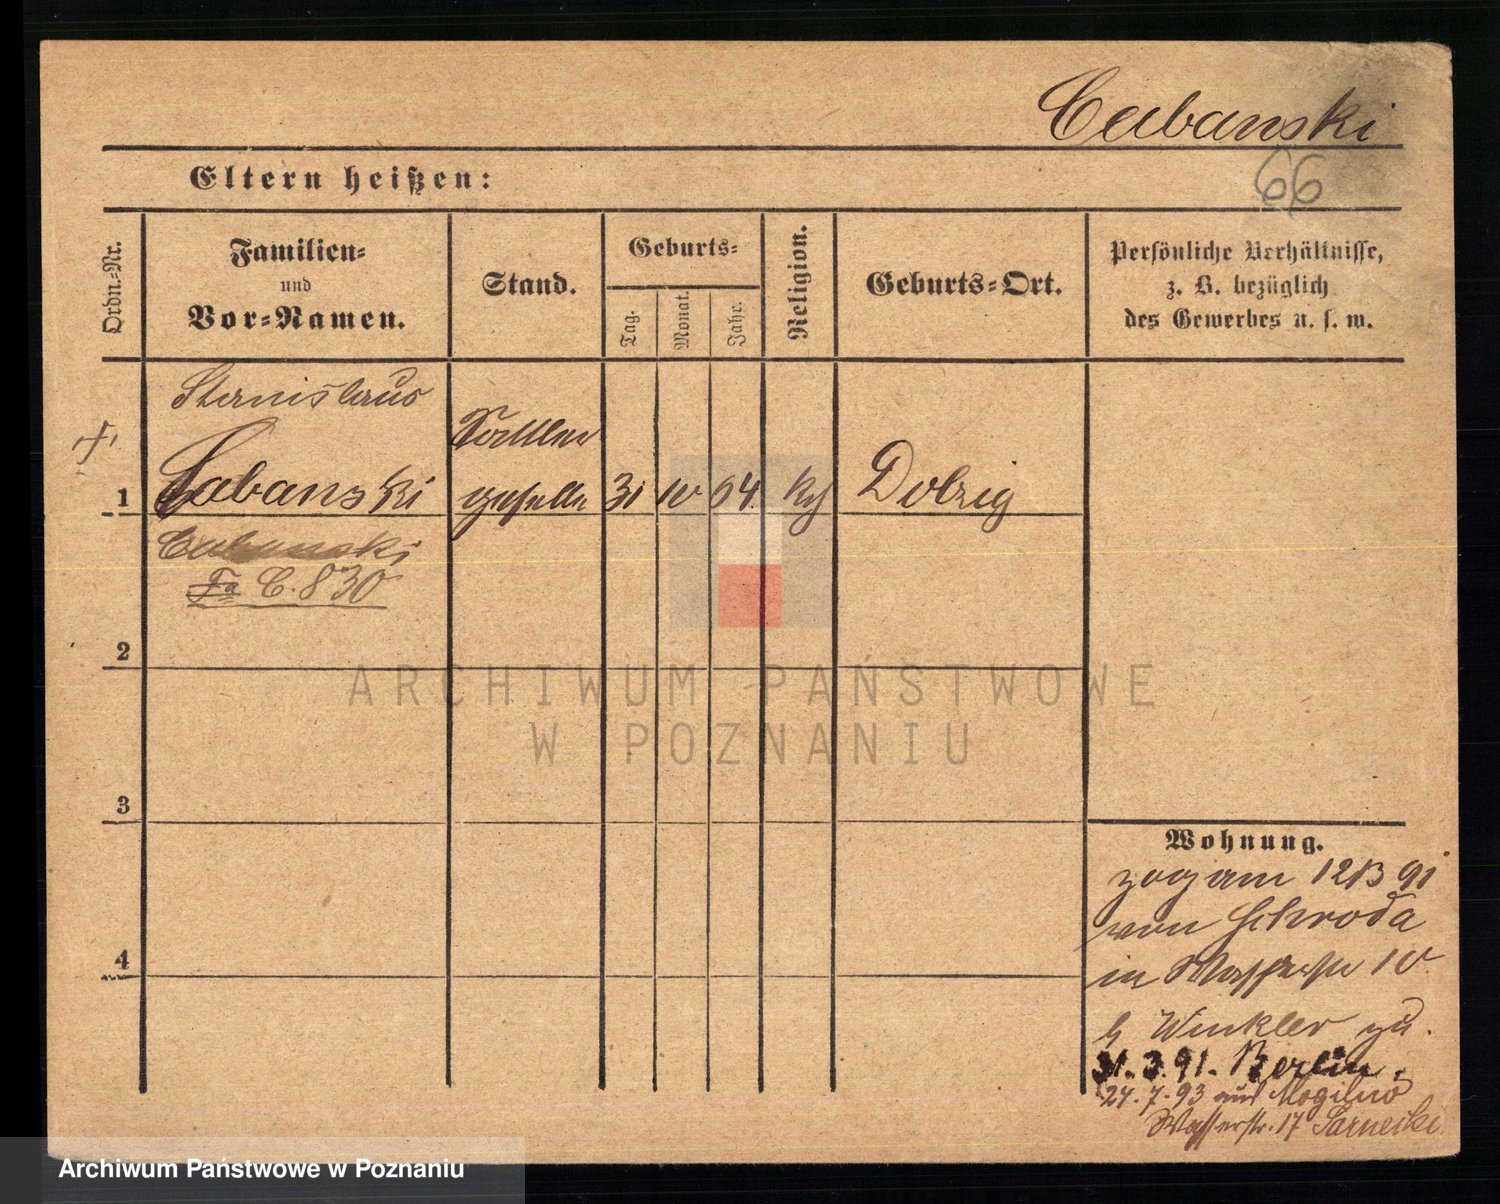 Cabanski
66
Eltern heißen:
Ordn.-Nr.
Familien-
und
Vor-Namen.
Stand.
Geburts-
Tag.
Monat.
Jahr.
Religion.
Geburts-Ort.
Persönliche Verhältnisse,
z. B. bezüglich
des Gewerbes u. s. w.
Stanislaus
Sattler
1 Cabanski geselle 31 10 64. kth Dolzig
Cabanski
Fa C. 830
2
3
4
Wohnung.
zog am 12/3 91
von Schroda
in Wasserstr 10
b Winkler zu.
31. 3. 91. Berlin.
24. 7. 93 aus Mogilno
Wasserstr. 17 Sarnecki
ARCHIWUM PAŃSTWOWE
W POZNANIU
Archiwum Państwowe w Poznaniu